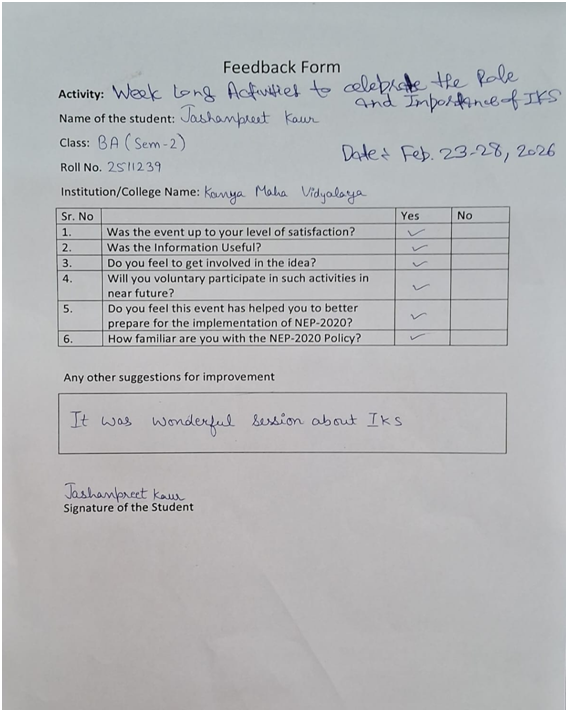 Feedback Form
Activity: Week Long Activities to celebrate the Role
and Importance of IKS
Name of the student: Jashanpreet Kaur
Class: BA (Sem-2)
Date: Feb. 23-28, 2026
Roll No. 2511239
Institution/College Name: Kanya Maha Vidyalaya
Sr. No Yes No
1. Was the event up to your level of satisfaction? ✓
2. Was the Information Useful? ✓
3. Do you feel to get involved in the idea? ✓
4. Will you voluntary participate in such activities in
near future? ✓
5. Do you feel this event has helped you to better
prepare for the implementation of NEP-2020? ✓
6. How familiar are you with the NEP-2020 Policy? ✓
Any other suggestions for improvement
It was wonderful session about IKS
Jashanpreet Kaur
Signature of the Student